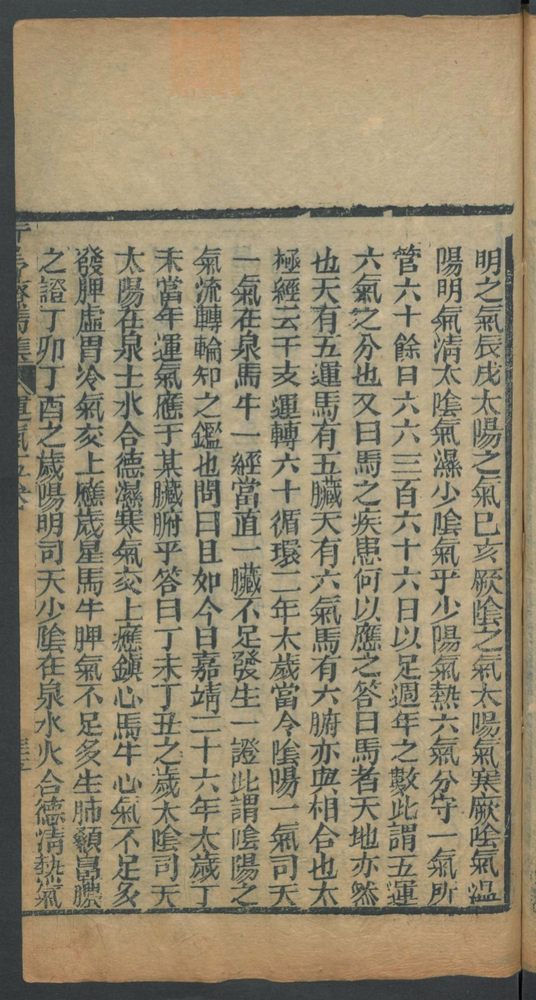 明之氣辰戌太陽之氣巳亥厥陰之氣太陽氣寒厥陰氣溫
陽明氣清太陰氣濕少陰氣乎少陽氣熱六氣分守一氣所
管六十餘日六六三百六十六日以足週年之數此謂五運
六氣之分也又曰馬之疾患何以應之答曰馬者天地亦然
也天有五運馬有五臟天有六氣馬有六腑亦與相合也太
極經云干支運轉六十循環二年太歲當今陰陽一氣司天
一氣在泉馬牛一經當直一臟不足發生一證此謂陰陽之
氣流轉輪知之鑑也問曰且如今日嘉靖二十六年太歲丁
未當年運氣應于某臟腑乎答曰丁未丁丑之歲太陰司天
太陽在泉土水合德濕寒氣交上應鎮心馬牛心氣不足多
發脾虛胃冷氣交上應歲星馬牛脾氣不足多生肺顙鼻膿
之證丁卯丁酉之歲陽明司天少陰在泉水火合德清熱氣
運氣